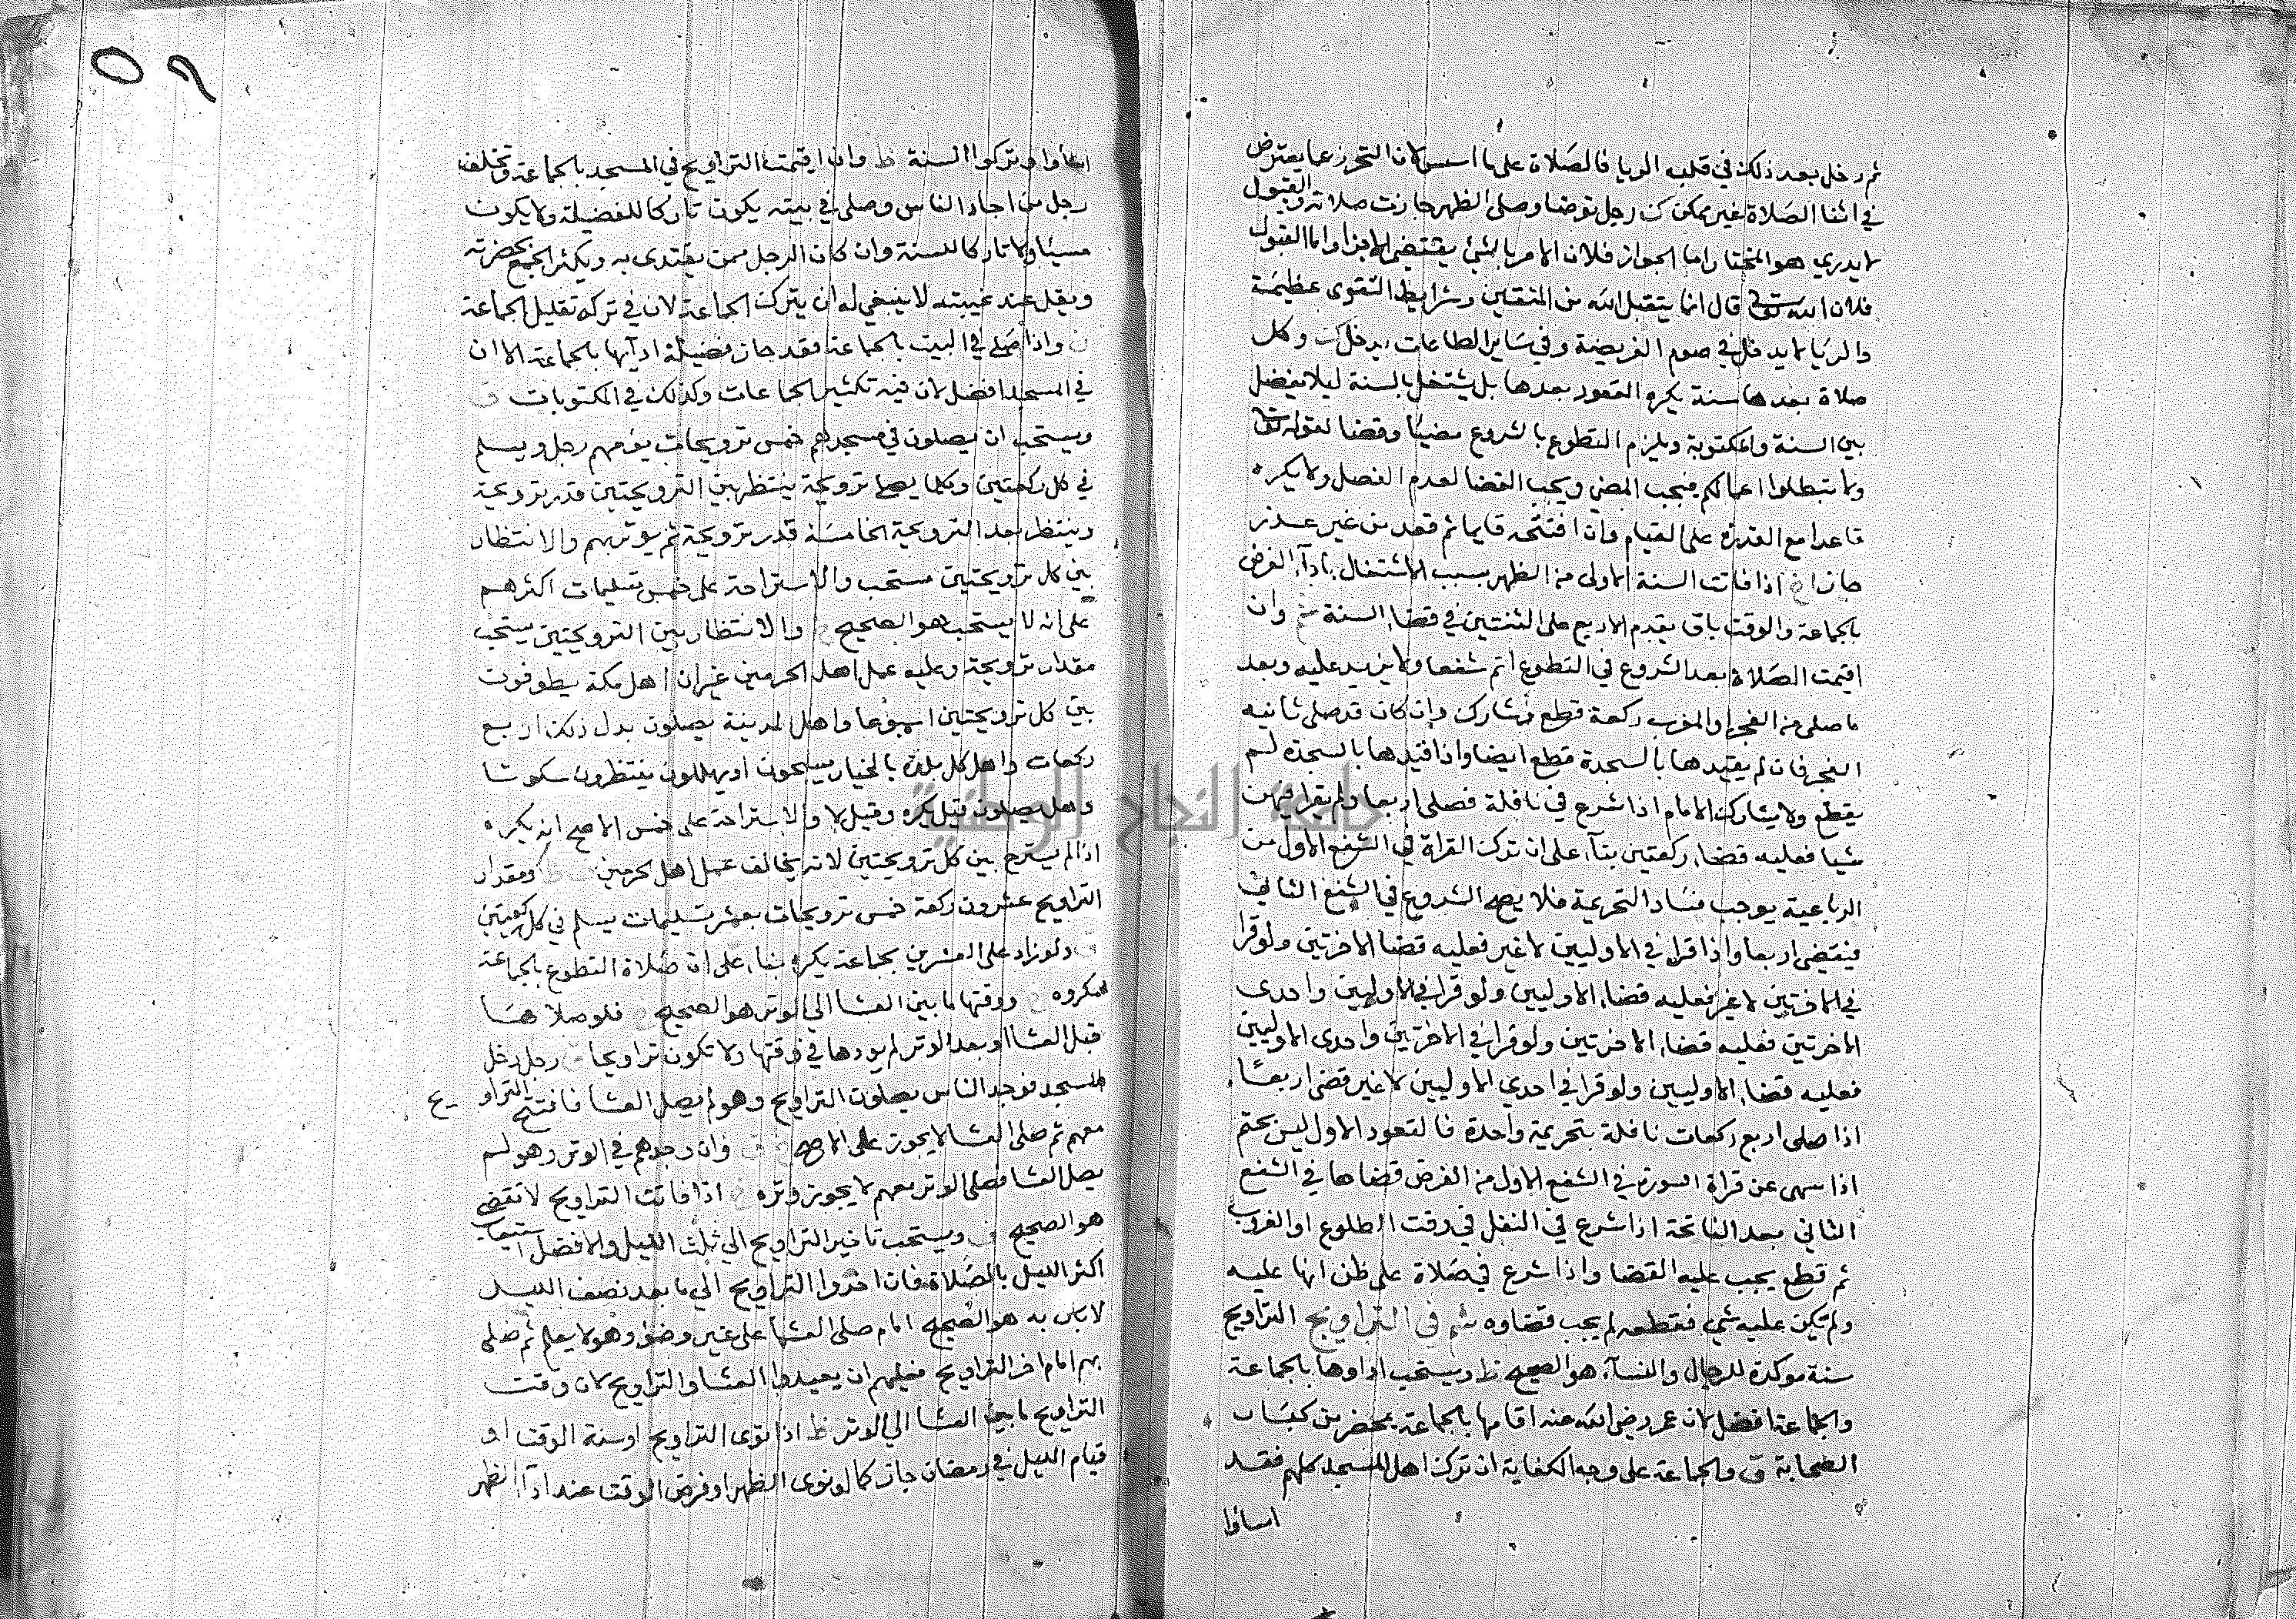 ثم دخل بعد ذلك في قلبه الريا فالصلاة على ما اسس لان التحرز عما يعترض
في اثنا الصلاة غير ممكن رجل توضا وصلى الظهر جازت صلاته والقبول
لا يدري هو المختار اما الجواز فلان الامر بالشي يقتضي الاجزا واما القبول
فلان الله تعالى قال انما يتقبل الله من المتقين وشرايط التقوى عظيمة
والريا لا يدخل في صوم الفريضة وفي ساير الطاعات يدخل وكل
صلاة بعدها سنة يكره القعود بعدها بل يشتغل بالسنة ليلا يفصل
بين السنة والمكتوبة ويلزم التطوع بالشروع مضيا وقضا لقوله تعالى
ولا تبطلوا اعمالكم فيجب المضي ويجب القضا لعدم الفصل ولا يكره
قاعدا مع القدرة على القيام وان افتتحه قايما ثم قعد من غير عذر
جاز اذا فاتت السنة الاولى من الظهر بسبب الاشتغال بادآ الفرض
بالجماعة والوقت باق يقدم الاربع على الثنتين في قضا السنة وان
اقيمت الصلاة بعد الشروع في التطوع اتم شفعا ولا يزيد عليه وبعد
ما صلى من الفجر او المغرب ركعة قطع وشارك وان كان قد صلى ثانيه
الفجر فان لم يقيدها بالسجدة قطع ايضا واذا قيدها بالسجدة لم
يقطع ولا يشارك الامام اذا شرع في نافلة فصلى اربعا ولم يقرا فيهن
شيا فعليه قضا ركعتين بنآ على ان ترك القراة في الشفع الاول من
الرباعية يوجب فساد التحريمة فلا يصح الشروع في الشفع الثاني
فيقضي اربعا واذا قرا في الاوليين لا غير فعليه قضا الاخرتين ولو قرا
في الاخرتين لا غير فعليه قضا الاوليين ولو قرا في الاوليين واحدى
الاخرتين فعليه قضا الاخرتين ولو قرا في الاخرتين واحدى الاوليين
فعليه قضا الاوليين ولو قرا في احدي الاوليين لا غير قضى اربعا
اذا صلى اربع ركعات نافلة بتحريمة واحدة فالقعود الاول ليس بحتم
اذا سهى عن قراة السورة في الشفع الاول من الفرض قضاها في الشفع
الثاني بعد الفاتحة اذا شرع في النفل في وقت الطلوع او الغروب
ثم قطع يجب عليه القضا واذا شرع في صلاة على ظن انها عليه
ولم تكن عليه شي فقطعه لم يجب قضاوه في التراويح التراويح
سنة موكدة للرجال والنسآ هو الصحيح ظ ويستحب اداوها بالجماعة
والجماعة افضل لان عمر رضي الله عنه اقامها بالجماعة بمحضر من كبار
الصحابة والجماعة على وجه الكفاية ان ترك اهل المسجد كلهم فقد
اساوا
اساوا وتركوا السنة ظ وان اقيمت التراويح في المسجد بالجماعة وتخلف
رجل من احاد الناس وصلى في بيته يكون تاركا للفضيلة ولا يكون
مسيئا ولا تاركا للسنة وان كان الرجل ممن يقتدى به ويكثر الجمع بحضرته
ويقل عند غيبته لا ينبغي له ان يترك الجماعة لان في تركه تقليل الجماعة
واذا صلى في البيت بالجماعة فقد حاز فضيلة ادآيها بالجماعة الا ان
في المسجد افضل لان فيه تكثير الجماعات وكذلك في المكتوبات
ويستحب ان يصلون في مسجدهم خمس ترويحات يؤمهم رجل ويسلم
في كل ركعتين وكلما يصلي ترويحة ينتظر بين الترويحتين قدر ترويحة
وينتظر بعد الترويحة الخامسة قدر ترويحة ثم يوتر بهم والانتظار
بين كل ترويحتين مستحب والاستراحة على خمس تسليمات اكثرهم
على انه لا يستحب هو الصحيح والانتظار بين الترويحتين يستحب
مقدار ترويحة وعليه عمل اهل الحرمين غير ان اهل مكة يطوفون
بين كل ترويحتين اسبوعا واهل المدينة يصلون بدل ذلك اربع
ركعات واهل كل بلدة بالخيار يسبحون او يهللون ينتظرون سكوتا
وهل يصلون قيل يكره وقيل لا والاستراحة على خمس الاصح انه يكره
اذا لم يسترح بين كل ترويحتين لانه يخالف عمل اهل الحرمين ومقدار
التراويح عشرون ركعة خمس ترويحات بعشر تسليمات يسلم في كل ركعتين
ولو زاد على العشرين بجماعة يكره بنا على ان صلاة التطوع بالجماعة
مكروه ووقتها ما بين العشا الى الوتر هو الصحيح فلو صلاها
قبل العشا او بعد الوتر لم يودها في وقتها ولا تكون تراويحا رجل دخل
المسجد فوجد الناس يصلون التراويح وهو لم يصل العشا فافتتح التراويح
معهم ثم صلى العشا لا يجوز على الاصح وان وجدهم في الوتر وهو لم
يصل العشا فصلى الوتر معهم لا يجوز وتره اذا فاتت التراويح لا تقضى
هو الصحيح ويستحب تاخير التراويح الى ثلث الليل والافضل استيعاب
اكثر الليل بالصلاة فان اخروا التراويح الى ما بعد نصف الليل
لا باس به هو الصحيح امام صلى العشا على غير وضو وهو لا يعلم ثم صلى
بهم امام اخر التراويح فعليهم ان يعيدوا العشا والتراويح لان وقت
التراويح ما بين العشا الى الوتر ظ اذا نوى التراويح او سنة الوقت او
قيام الليل في رمضان جاز كما لو نوى الظهر او فرض الوقت عند ادآ الظهر
جامعة النجاح الوطنية